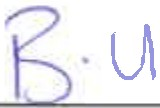 B. U